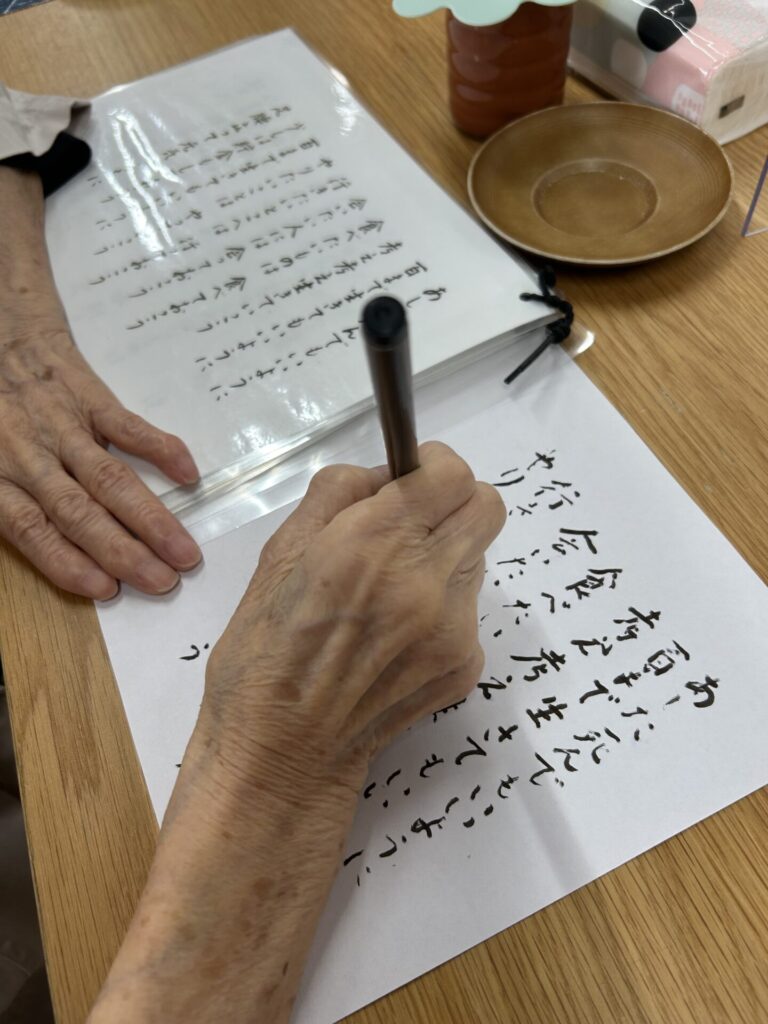 あし んでもいいように
百まで生きてもいいように
考え考え生きていこう
食べたいものは 食べておこう
会いたい人には 会っておこう
行きたいところへは 行
やりたいことは や
百まで生きても
少しは貯金も
あした死んでもいいように
百まで生きてもいいように
考え考え生
食べたい
会いたい
行きた
やり
う